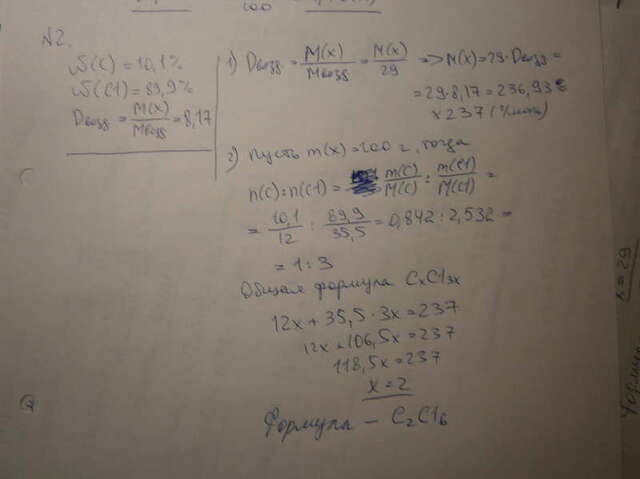 №2.
ω(C) = 10,1%
ω(Cl) = 89,9%
Dвозд = M(x)/Mвозд = 8,17
1) Dвозд = M(x)/Mвозд = M(x)/29 => M(x) = 29·Dвозд =
= 29·8,17 = 236,93 ≈
≈ 237 (г/моль)
2) Пусть m(x) = 100 г, тогда
n(C) : n(Cl) = m(C)/M(C) : m(Cl)/M(Cl) =
= 10,1/12 : 89,9/35,5 = 0,842 : 2,532 =
= 1 : 3
Общая формула CxCl3x
12x + 35,5·3x = 237
12x + 106,5x = 237
118,5x = 237
x = 2
Формула – C2Cl6
x = 29